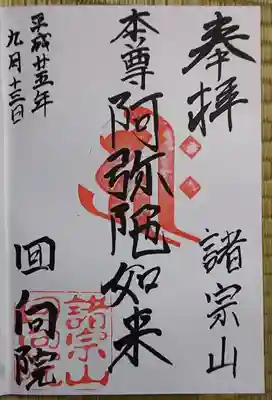 奉拝
諸宗山
本尊阿弥陀如来
平成廿五年
九月十三日
回向院
諸宗山
回向院